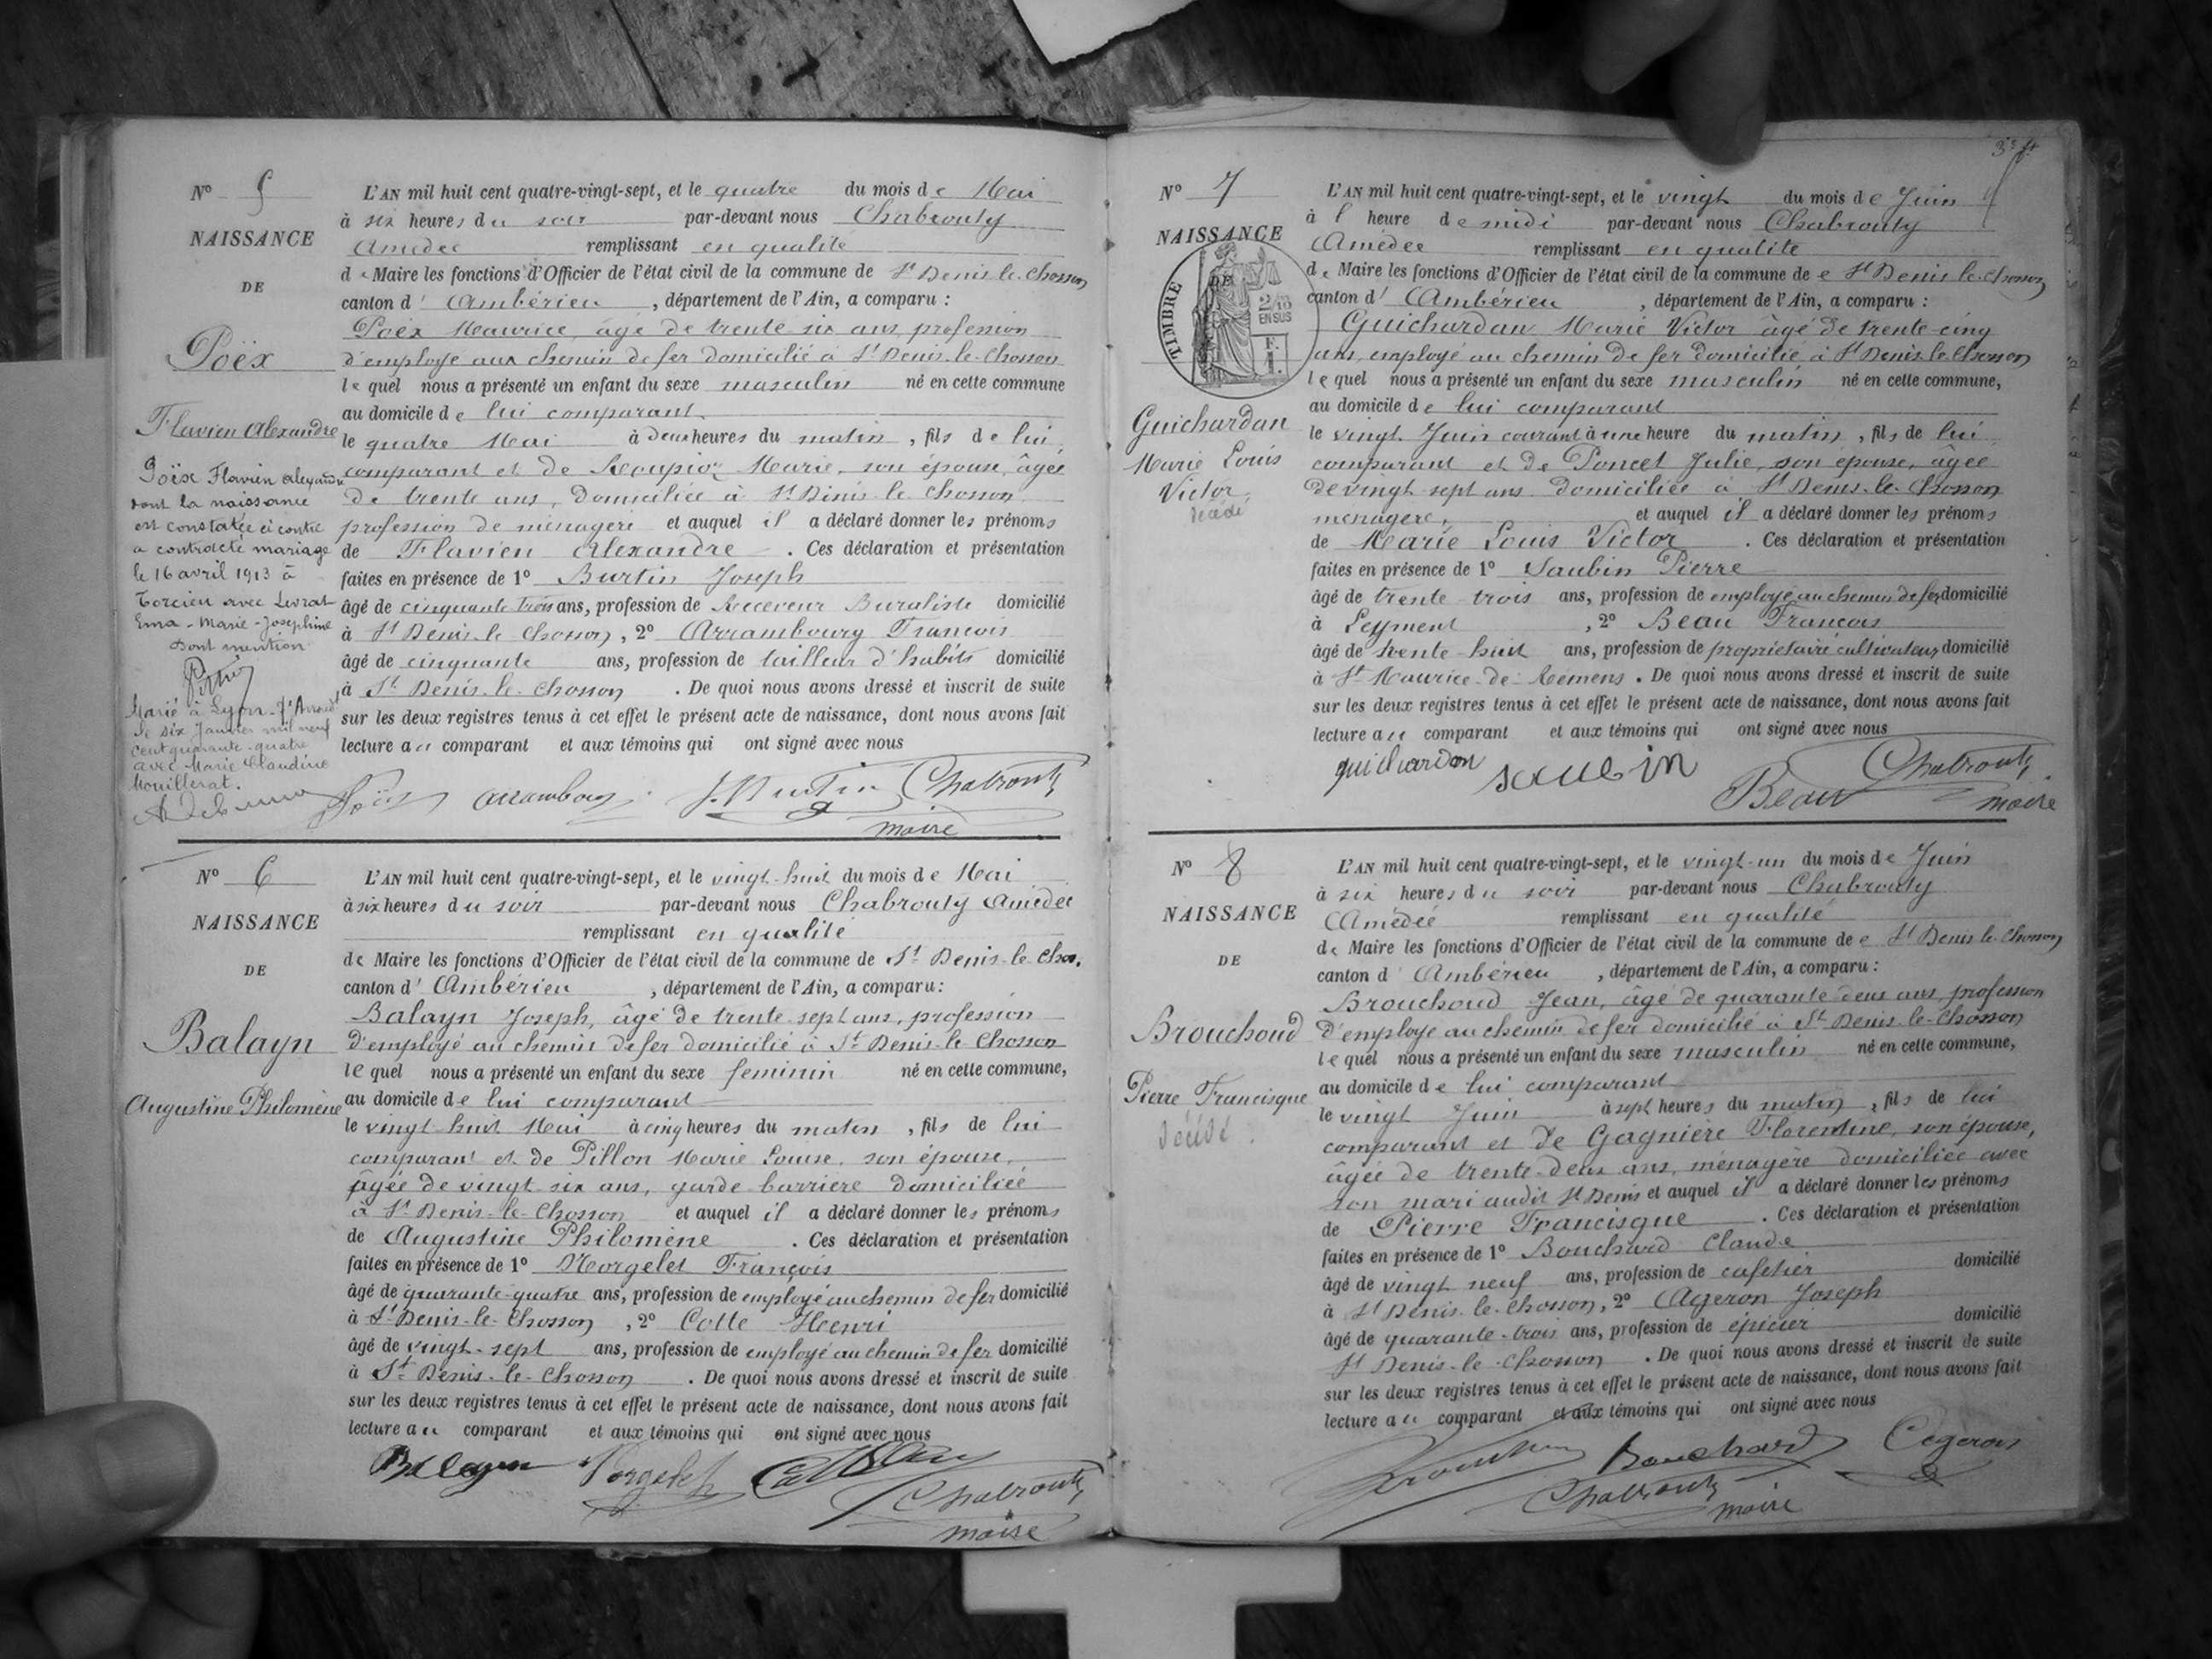 N° 5
NAISSANCE
DE
Poëx
Flavien Alexandre
Poëx Flavien Alexandre
dont la naissance
est constatée ci contre
a contracté mariage
le 16 avril 1913 à
Torcieu avec Livrat
Ema-Marie-Joséphine
Dont mention
Marié à Lyon-7e Arrondt
le six Janvier mil neuf
cent quarante-quatre
avec Marie Claudine
Mouillerat.
L'AN mil huit cent quatre-vingt-sept, et le quatre du mois de Mai
à six heures du soir par-devant nous Chabrouty
Amédée remplissant en qualité
de Maire les fonctions d'Officier de l'état civil de la commune de St Denis-le-Chosson
canton d' Ambérieu , département de l'Ain, a comparu :
Poëx Maurice, âgé de trente six ans, profession
d'employé aux chemin de fer domicilié à St Denis-le-Chosson
lequel nous a présenté un enfant du sexe masculin né en cette commune
au domicile de lui comparant
le quatre Mai à deux heures du matin , fils de lui
comparant et de Marie, son épouse, âgée
de trente ans, domiciliée à St Denis le Chosson
profession de ménagère et auquel il a déclaré donner les prénoms
de Flavien Alexandre . Ces déclaration et présentation
faites en présence de 1° Burtin Joseph
âgé de cinquante trois ans, profession de Receveur Buraliste domicilié
à St Denis-le Chosson , 2° Arrambourg François
âgé de cinquante ans, profession de tailleur d'habits domicilié
à St Denis-le-Chosson . De quoi nous avons dressé et inscrit de suite
sur les deux registres tenus à cet effet le présent acte de naissance, dont nous avons fait
lecture au comparant et aux témoins qui ont signé avec nous
Poëx Arrambourg J. Burtin Chabrouty
maire
N° 6
NAISSANCE
DE
Balayn
Augustine Philomène
L'AN mil huit cent quatre-vingt-sept, et le vingt-huit du mois de Mai
à six heures du soir par-devant nous Chabrouty Amédée
remplissant en qualité
de Maire les fonctions d'Officier de l'état civil de la commune de St Denis-le-Chos.
canton d' Ambérieu , département de l'Ain, a comparu :
Balayn Joseph, âgé de trente sept ans, profession
d'employé au chemin de fer domicilié à St Denis-le Chosson
lequel nous a présenté un enfant du sexe feminin né en cette commune,
au domicile de lui comparant
le vingt huit Mai à cinq heures du matin , fils de lui
comparant et de Pillon Marie Louise, son épouse,
âgée de vingt six ans, garde-barrière domiciliée
à St Denis-le-Chosson et auquel il a déclaré donner les prénoms
de Augustine Philomène . Ces déclaration et présentation
faites en présence de 1° Morgelet François
âgé de quarante-quatre ans, profession de employé au chemin de fer domicilié
à St Denis-le-Chosson , 2° Cotte Henri
âgé de vingt-sept ans, profession de employé au chemin de fer domicilié
à St Denis-le-Chosson . De quoi nous avons dressé et inscrit de suite
sur les deux registres tenus à cet effet le présent acte de naissance, dont nous avons fait
lecture au comparant et aux témoins qui ont signé avec nous
Balayn Chabrouty
maire
N° 7
NAISSANCE
DE
TIMBRE
2/10
EN SUS
F.
1.
Guichardan
Marie Louis
Victor
décédé
L'AN mil huit cent quatre-vingt-sept, et le vingt du mois de Juin
à l heure de midi par-devant nous Chabrouty
Amédée remplissant en qualité
de Maire les fonctions d'Officier de l'état civil de la commune de e St Denis-le-Chosson
canton d' Ambérieu , département de l'Ain, a comparu :
Guichardan Marie Victor âgé de trente-cinq
ans, employé au chemin de fer domicilié à St Denis-le-Chosson
lequel nous a présenté un enfant du sexe masculin né en cette commune,
au domicile de lui comparant
le vingt Juin courant à une heure du matin , fils de lui
comparant et de Poncet Julie, son épouse, âgée
de vingt-sept ans domiciliée à St Denis-le-Chosson
ménagère, et auquel il a déclaré donner les prénoms
de Marie Louis Victor . Ces déclaration et présentation
faites en présence de 1° Saubin Pierre
âgé de trente-trois ans, profession de employé au chemin de fer domicilié
à Leyment , 2° Beau François
âgé de trente-huit ans, profession de propriétaire cultivateur domicilié
à St Maurice-de-Rémens . De quoi nous avons dressé et inscrit de suite
sur les deux registres tenus à cet effet le présent acte de naissance, dont nous avons fait
lecture au comparant et aux témoins qui ont signé avec nous
guichardan saubin Beau Chabrouty
maire
N° 8
NAISSANCE
DE
Brouchoud
Pierre Francisque
décédé.
L'AN mil huit cent quatre-vingt-sept, et le vingt-un du mois de Juin
à six heures du soir par-devant nous Chabrouty
Amédée remplissant en qualité
de Maire les fonctions d'Officier de l'état civil de la commune de e St Denis-le-Chosson
canton d' Ambérieu , département de l'Ain, a comparu :
Brouchoud Jean, âgé de quarante deux ans, profession
d'employé au chemin de fer domicilié à St Denis-le-Chosson
lequel nous a présenté un enfant du sexe masculin né en cette commune,
au domicile de lui comparant
le vingt Juin à sept heures du matin , fils de lui
comparant et de Gagnière Florentine, son épouse,
âgée de trente-deux ans, ménagère domiciliée avec
son mari audit St Denis et auquel il a déclaré donner les prénoms
de Pierre Francisque . Ces déclaration et présentation
faites en présence de 1° Bouchard Claude
âgé de vingt neuf ans, profession de cafetier domicilié
à St Denis-le-Chosson , 2° Ageron Joseph
âgé de quarante-trois ans, profession de épicier domicilié
St Denis-le-Chosson . De quoi nous avons dressé et inscrit de suite
sur les deux registres tenus à cet effet le présent acte de naissance, dont nous avons fait
lecture au comparant et aux témoins qui ont signé avec nous
Bouchard Ageron
Chabrouty
maire